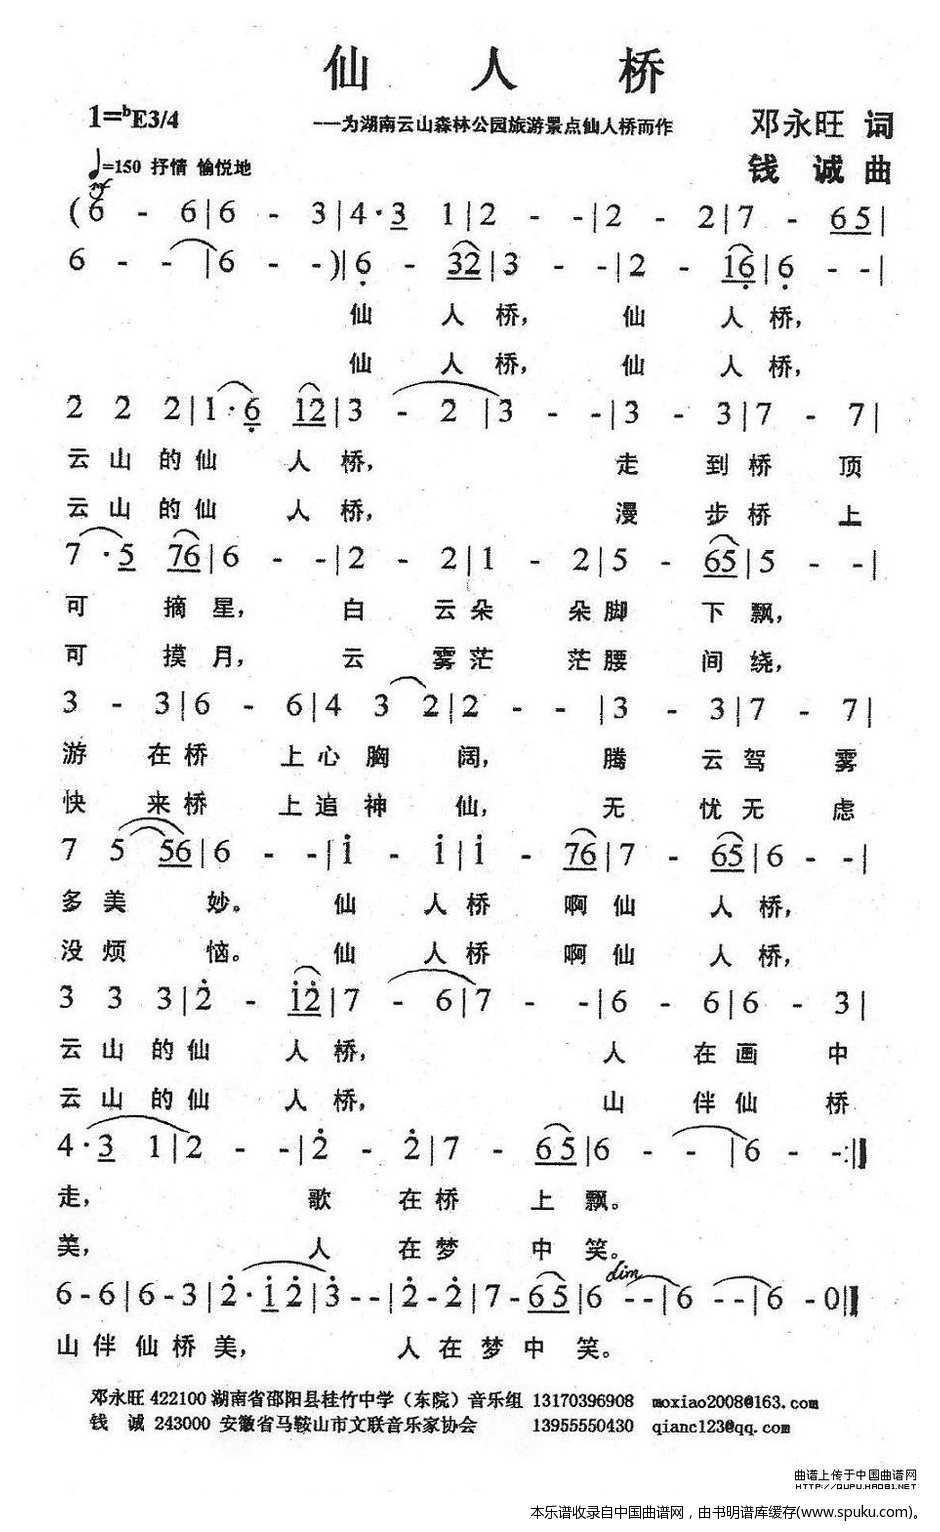 仙 人 桥
1=ᵇE3/4
---为湖南云山森林公园旅游景点仙人桥而作
邓永旺 词
♩=150 抒情 愉悦地
钱 诚 曲
mf
(6 - 6|6 - 3|4·3 1|2 - -|2 - 2|7 - 65|
6 - - |6 - -)|6 - 32|3 - -|2 - 16|6 - -|
仙 人 桥， 仙 人 桥，
仙 人 桥， 仙 人 桥，
2 2 2|1·6 12|3 - 2|3 - -|3 - 3|7 - 7|
云 山 的 仙 人 桥， 走 到 桥 顶
云 山 的 仙 人 桥， 漫 步 桥 上
7·5 76|6 - -|2 - 2|1 - 2|5 - 65|5 - -|
可 摘 星， 白 云 朵 朵 脚 下 飘，
可 摸 月， 云 雾 茫 茫 腰 间 绕，
3 - 3|6 - 6|4 3 2|2 - -|3 - 3|7 - 7|
游 在 桥 上 心 胸 阔， 腾 云 驾 雾
快 来 桥 上 追 神 仙， 无 忧 无 虑
7 5 56|6 - -|i - i|i - 76|7 - 65|6 - -|
多 美 妙。 仙 人 桥 啊 仙 人 桥，
没 烦 恼。 仙 人 桥 啊 仙 人 桥，
3 3 3|2̇ - i2̇|7 - 6|7 - -|6 - 6|6 - 3|
云 山 的 仙 人 桥， 人 在 画 中
云 山 的 仙 人 桥， 山 伴 仙 桥
4·3 1|2 - -|2̇ - 2̇|7 - 65|6 - -|6 - -:||
走， 歌 在 桥 上 飘。
美， 人 在 梦 中 笑。
dim
6-6|6-3|2̇·i 2̇|3̇--|2̇-2̇|7-65|6 --|6 --|6 -0||
山 伴 仙 桥 美， 人 在 梦 中 笑。
邓永旺 422100 湖南省邵阳县桂竹中学（东院）音乐组 13170396908 moxiao2008@163.com
钱 诚 243000 安徽省马鞍山市文联音乐家协会 13955550430 qianc123@qq.com
曲谱上传于中国曲谱网
HTTP://QUPU.HAO81.NET
本乐谱收录自中国曲谱网，由书明谱库缓存(www.spuku.com)。